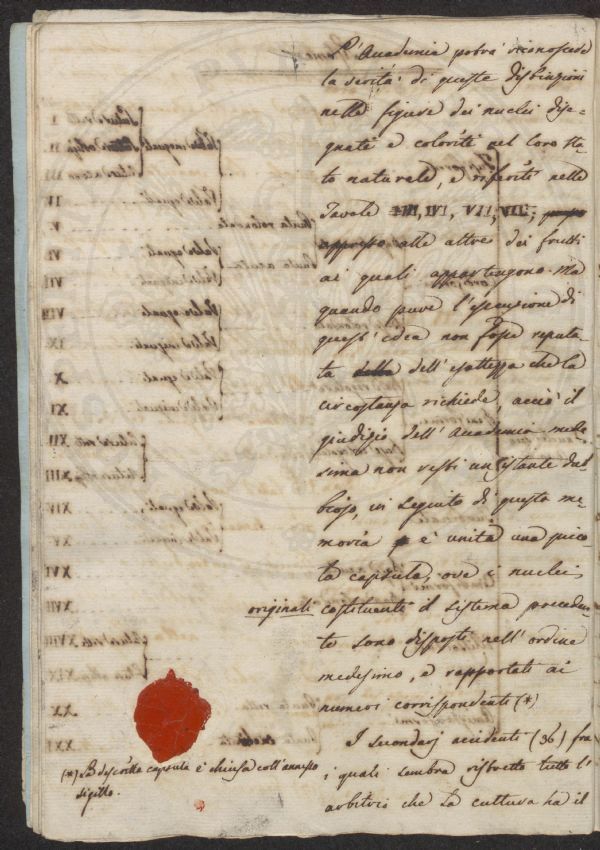 L'Accademia potrà riconoscere
la verità di queste distinzioni
nelle figure dei nuclei dise-
gnati e coloriti nel loro sta-
to naturale, e riferiti nelle
Tavole VII, VIII,
appresso alle altre dei frutti
ai quali appartengono. Ma
quando pure l'espressione di
quest'idea non fosse reputa-
ta della dell'esattezza che la
circostanza richiede, acciò il
giudizio dell'Accademia mede-
sima non resti un istante dub-
bioso, in seguito di questa me-
moria è unita una picco-
la capsula, ove i nuclei
originali costituente il sistema preceden-
te sono disposti nell'ordine
medesimo, e rapportati ai
numeri corrispondenti (*)
I secondarj accidenti (36) fra
i quali sembra ristretto tutto l'
arbitrio che la cultura ha il
(*) La descritta capsula è chiusa coll'annesso
sigillo.